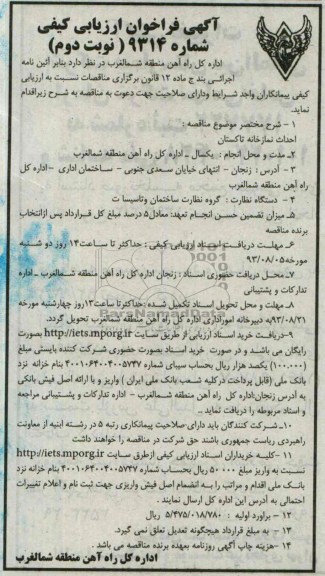 آگهی فراخوان ارزیابی کیفی
شماره ۹۳۱۴ ( نوبت دوم)
اداره کل راه آهن منطقه شمالغرب در نظر دارد بنابر آئین نامه
اجرائی بند ج ماده ۱۲ قانون برگزاری مناقصات نسبت به ارزیابی
کیفی پیمانکاران واجد شرایط ودارای صلاحیت جهت دعوت به مناقصه به شرح زیراقدام
نماید.
۱ - شرح مختصر موضوع مناقصه :
احداث نمازخانه تاکستان
۲ـ مدت و محل انجام : یکسال ـ اداره کل راه آهن منطقه شمالغرب
۳ - آدرس : زنجان - انتهای خیابان سعدی جنوبی - ساختمان اداری -اداره کل
راه آهن منطقه شمالغرب
۴ - دستگاه نظارت : گروه نظارت ساختمان وتاسیسات
۵ـ میزان تضمین حسن انجام تعهد: معادل۵ درصد مبلغ کل قرارداد پس ازانتخاب
برنده مناقصه
۶ - مهلت دریافت اسناد ارزیابی کیفی : حداکثر تا ساعت۱۴ روز دو شنبه
مورخه۹۳/۰۸/۰۵
۷ـ محل دریافت حضوری اسناد : زنجان اداره کل راه آهن منطقه شمالغرب ـ اداره
تدارکات و پشتیبانی
۸ـ مهلت و محل تحویل اسناد تکمیل شده :حداکثرتا ساعت۱۳روز چهارشنبه مورخه
۹۳/۰۸/۲۱به دبیرخانه اموراداری اداره کل راه آهن منطقه شمالغرب تحویل گردد.
۹-دریافت خرید اسناد ارزیابی از طریق سایت http://iets.mporg.ir بصورت
رایگان می باشد و در صورت خرید اسناد بصورت حضوری شرکت کننده بایستی مبلغ
(۱۰۰.۰۰۰) یکصد هزار ریال بحساب سیبای شماره ۴۰۰۱۰۶۴۰۰۴۰۰۵۷۴۷ بنام خزانه نزد
بانک ملی (قابل پرداخت درکلیه شعب بانک ملی ایران ) واریز و با ارائه اصل فیش بانکی
به آدرس زنجان:اداره کل راه آهن منطقه شمالغرب - اداره تدارکات و پشتیبانی مراجعه
و اسناد مربوطه را دریافت نماید .
۱۰ـ شرکت کنندگان باید دارای صلاحیت پیمانکاری رتبه ۵ در رشته ابنیه از معاونت
راهبردی ریاست جمهوری باشند حق شرکت در مناقصه را خواهند داشت
۱۱ -کلیه خریداران اسناد ارزیابی کیفی ازطرق سایت http://iets.mporg.ir
نسبت به واریز مبلغ ۵۰۰۰۰ ریال بحساب شماره ۴۰۰۱۰۶۴۰۰۴۰۰۵۷۴۷ بنام خزانه نزد
بانک ملی اقدام و مراتب را به انضمام اصل فیش واریزی جهت ثبت نام و اعلام تغییرات
احتمالی به آدرس این اداره کل ارسال نمایند .
۱۲ - براورد اولیه : ۵/۴۷۵/۰۱۸/۷۸۰ ریال
۱۳ - به مبلغ قرارداد هیچگونه تعدیل تعلق نمی گیرد.
۱۴ -هزینه چاپ آگهی روزنامه بعهده برنده مناقصه می باشد .
اداره کل راه آهن منطقه شمالغرب